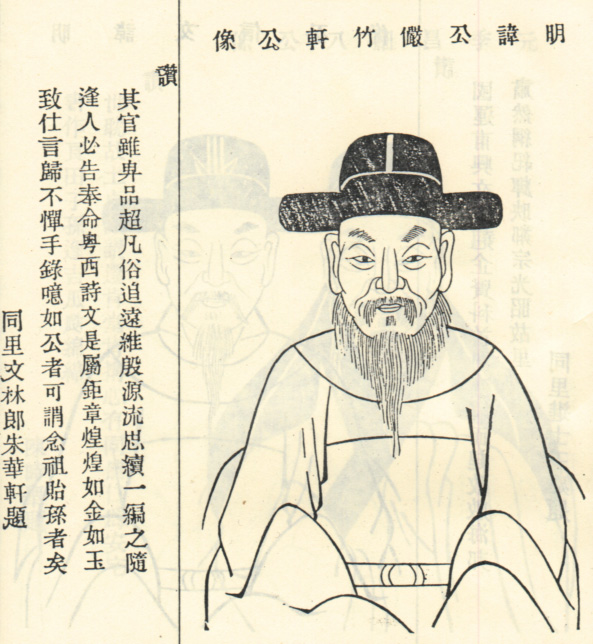 明諱公儼竹軒公像
讚
其官雖卑品超凡俗追遠維殷源流思續一編之隨
逢人必告奉命粵西詩文是屬鉅章煌煌如金如玉
致仕言歸不憚手錄噫如公者可謂念祖貽孫者矣
同里文林郎朱華軒題